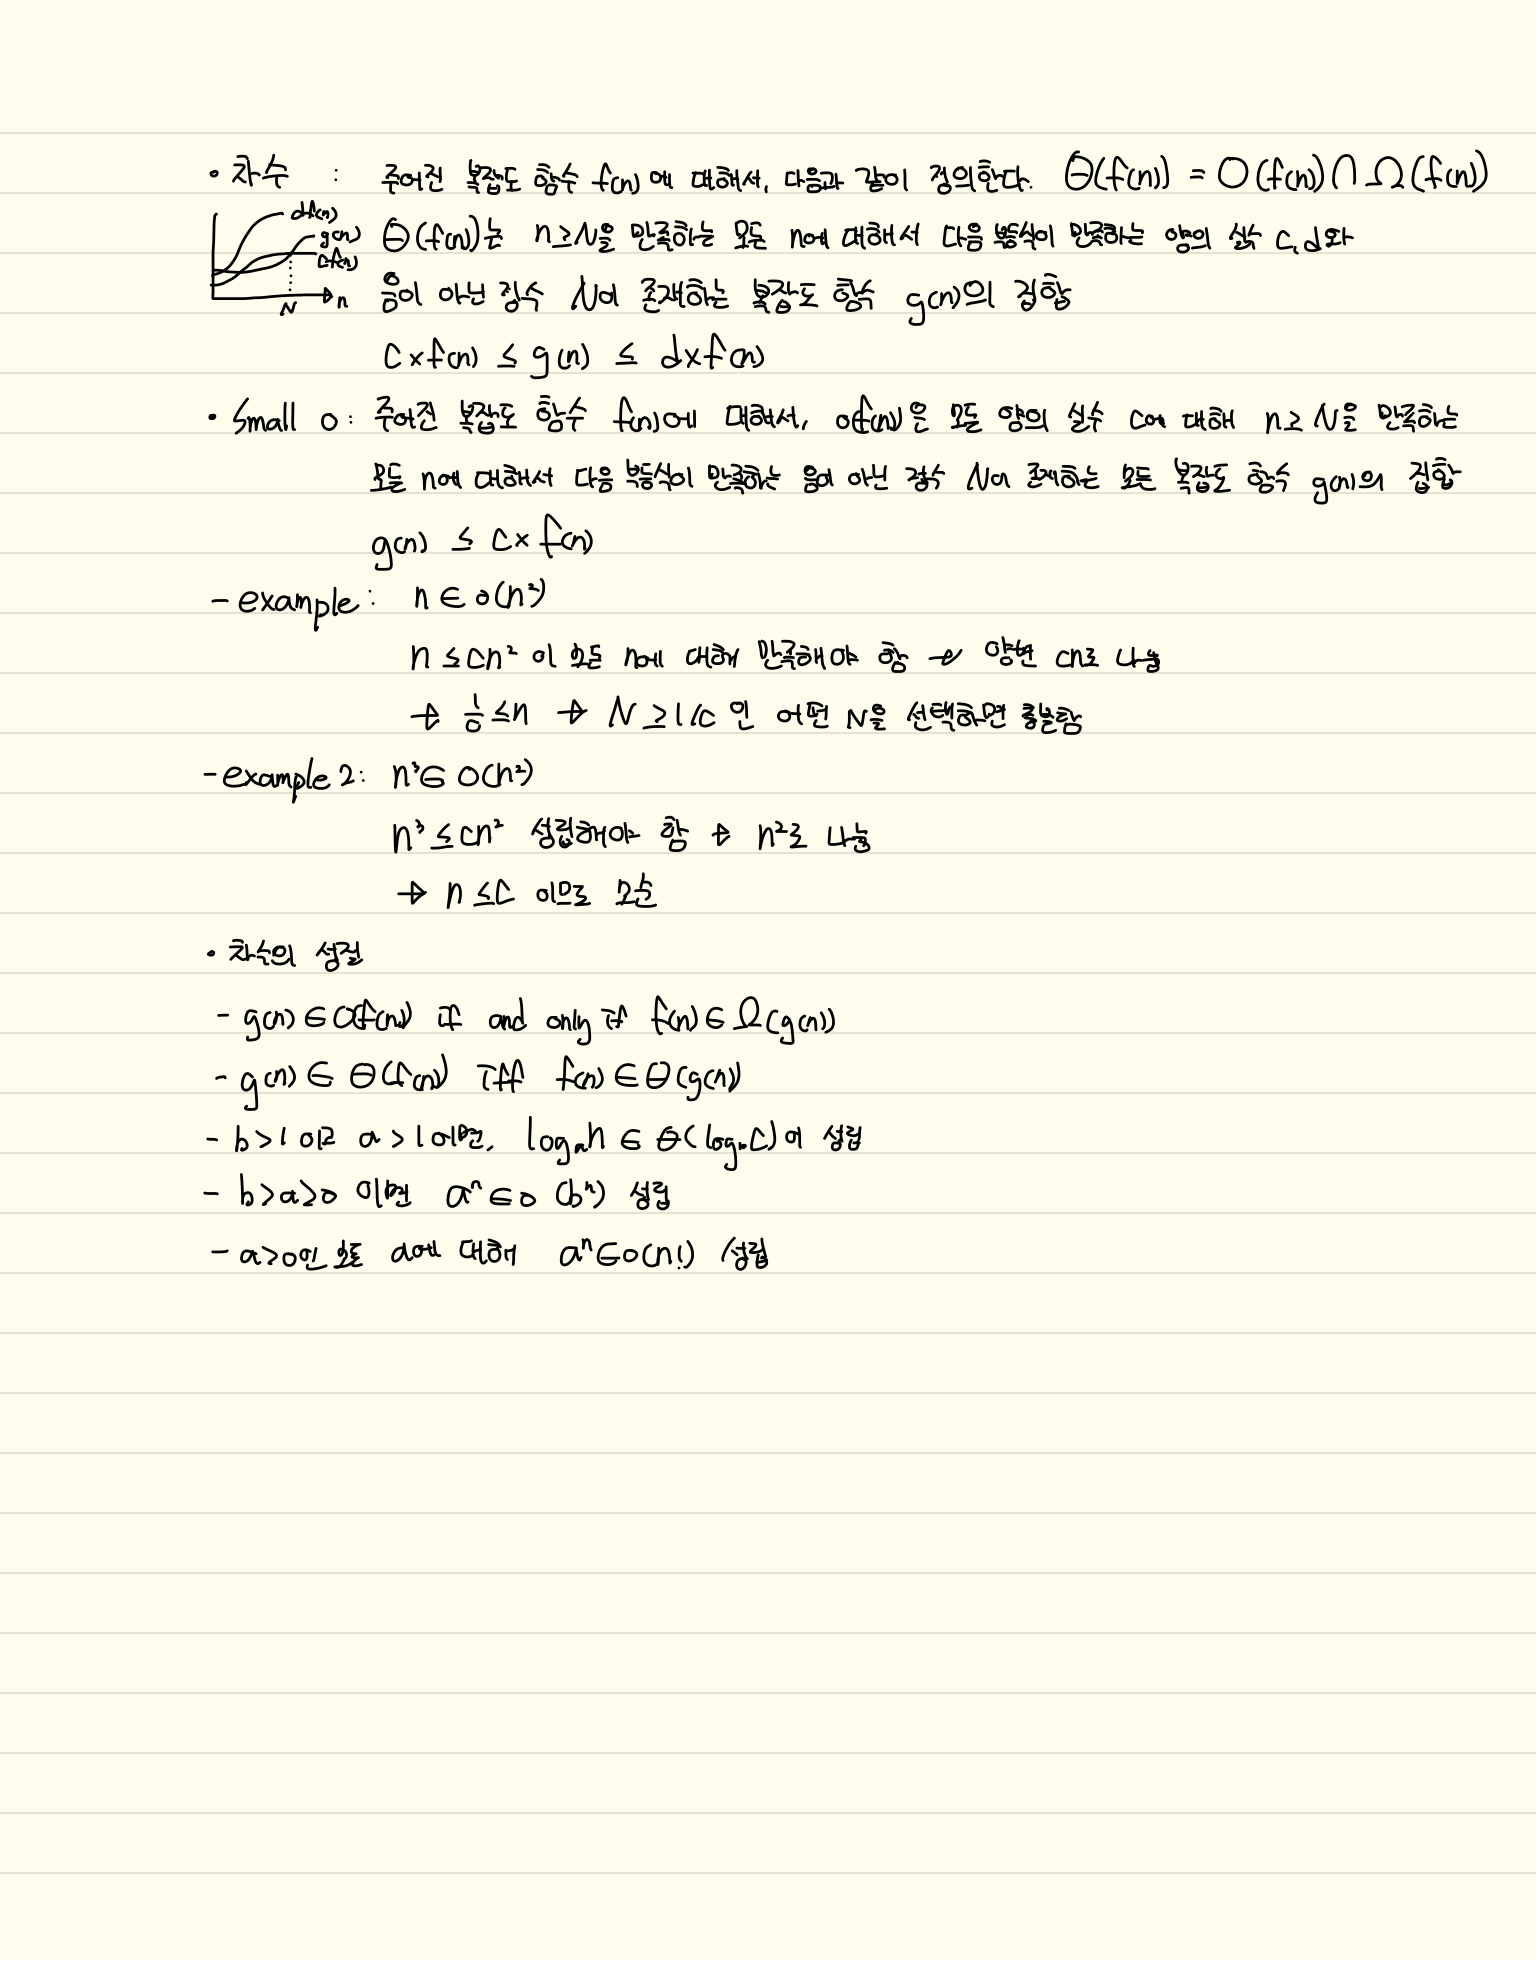 • 차수 : 주어진 복잡도 함수 f(n)에 대해서, 다음과 같이 정의한다. Θ(f(n)) = O(f(n)) ∩ Ω(f(n))
df(n)
g(n)
cf(n)
N
n
Θ(f(n))는 n≥N을 만족하는 모든 n에 대해서 다음 부등식이 만족하는 양의 실수 c, d와
음이 아닌 정수 N이 존재하는 복잡도 함수 g(n)의 집합
c×f(n) ≤ g(n) ≤ d×f(n)
• Small o: 주어진 복잡도 함수 f(n)에 대해서, o(f(n))은 모든 양의 실수 c에 대해 n≥N을 만족하는
모든 n에 대해서 다음 부등식이 만족하는 음이 아닌 정수 N이 존재하는 모든 복잡도 함수 g(n)의 집합
g(n) ≤ c×f(n)
- example: n∈o(n²)
n≤cn² 이 모든 n에 대해 만족해야 함 → 양변 cn로 나눔
→ 1/c ≤n → N≥1/c 인 어떤 N을 선택하면 충분함
- example 2: n³∈O(n²)
n³≤cn² 성립해야 함 → n²로 나눔
→ n≤c 이므로 모순
• 차수의 성질
- g(n)∈O(f(n)) if and only if f(n)∈Ω(g(n))
- g(n)∈Θ(f(n)) iff f(n)∈Θ(g(n))
- b>1이고 a>1이면, logₐn ∈ Θ(log_b C)이 성립
- b>a>0 이면 aⁿ∈o(bⁿ) 성립
- a>0인 모든 a에 대해 aⁿ∈o(n!) 성립